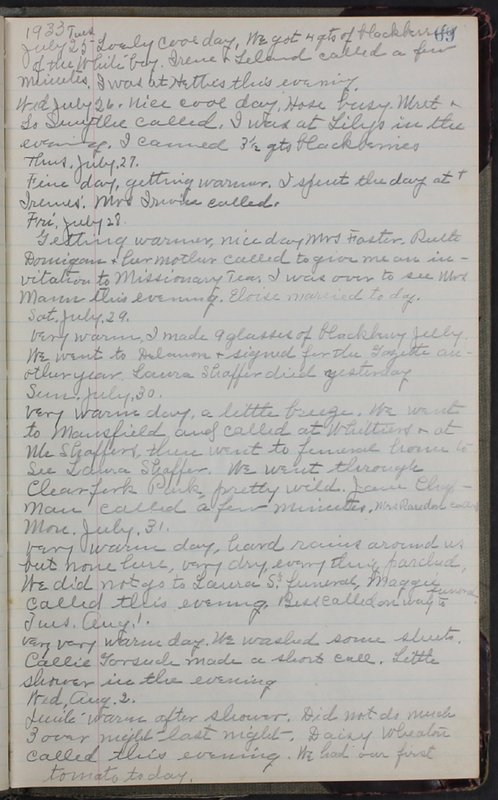 1933 Tues 69
July 25 - Lovely cool day, We got 4 qts of blackberries
of the White boy. Irene & Leland called a few
minutes, I was at Hetties this evening.
Wed July 26. Nice cool day, Hose busy. Mret &
So called. I was at Lilys in the
evening. I canned 3½ qts blackberries
Thus. July. 27.
Fine day, getting warmer. I spent the day at
Irenes. Mrs called.
Fri, July 28
Getting warmer, nice day Mrs Foster. Ruth
Domigan & her mother called to give me an in-
vitation to Missionary Tea. I was over to see Mrs
Mann this evening. Eloise married to day.
Sat, July, 29.
Very warm, I made 9 glasses of blackberry Jelly.
We went to & signed for the Gazette an-
other year. Laura Shaffer died yesterday
Sun. July, 30.
Very warm day, a little breeze. We went
to Mansfield, and called at Whittiers & at
Mc Shaffers, then went to funeral home to
See Laura Shaffer. We went through
Clearfork Park, pretty wild. Jane Chap-
man called a few minutes, Mrs called
Mon. July, 31.
Very warm day, hard rains around us
but none here, very dry, every thing parched,
We did not go to Laura S! funeral, Maggie
called this evening. Bess called on way to funeral
Tues. Aug. 1.
very very warm day. We washed some sheets.
Callie Gorsuch made a short call. Little
shower in the evening
Wed, Aug. 2.
Quite warm after shower. Did not do much
3 over night last night. Daisy Wheaton
called this evening. We had our first
tomato to day.